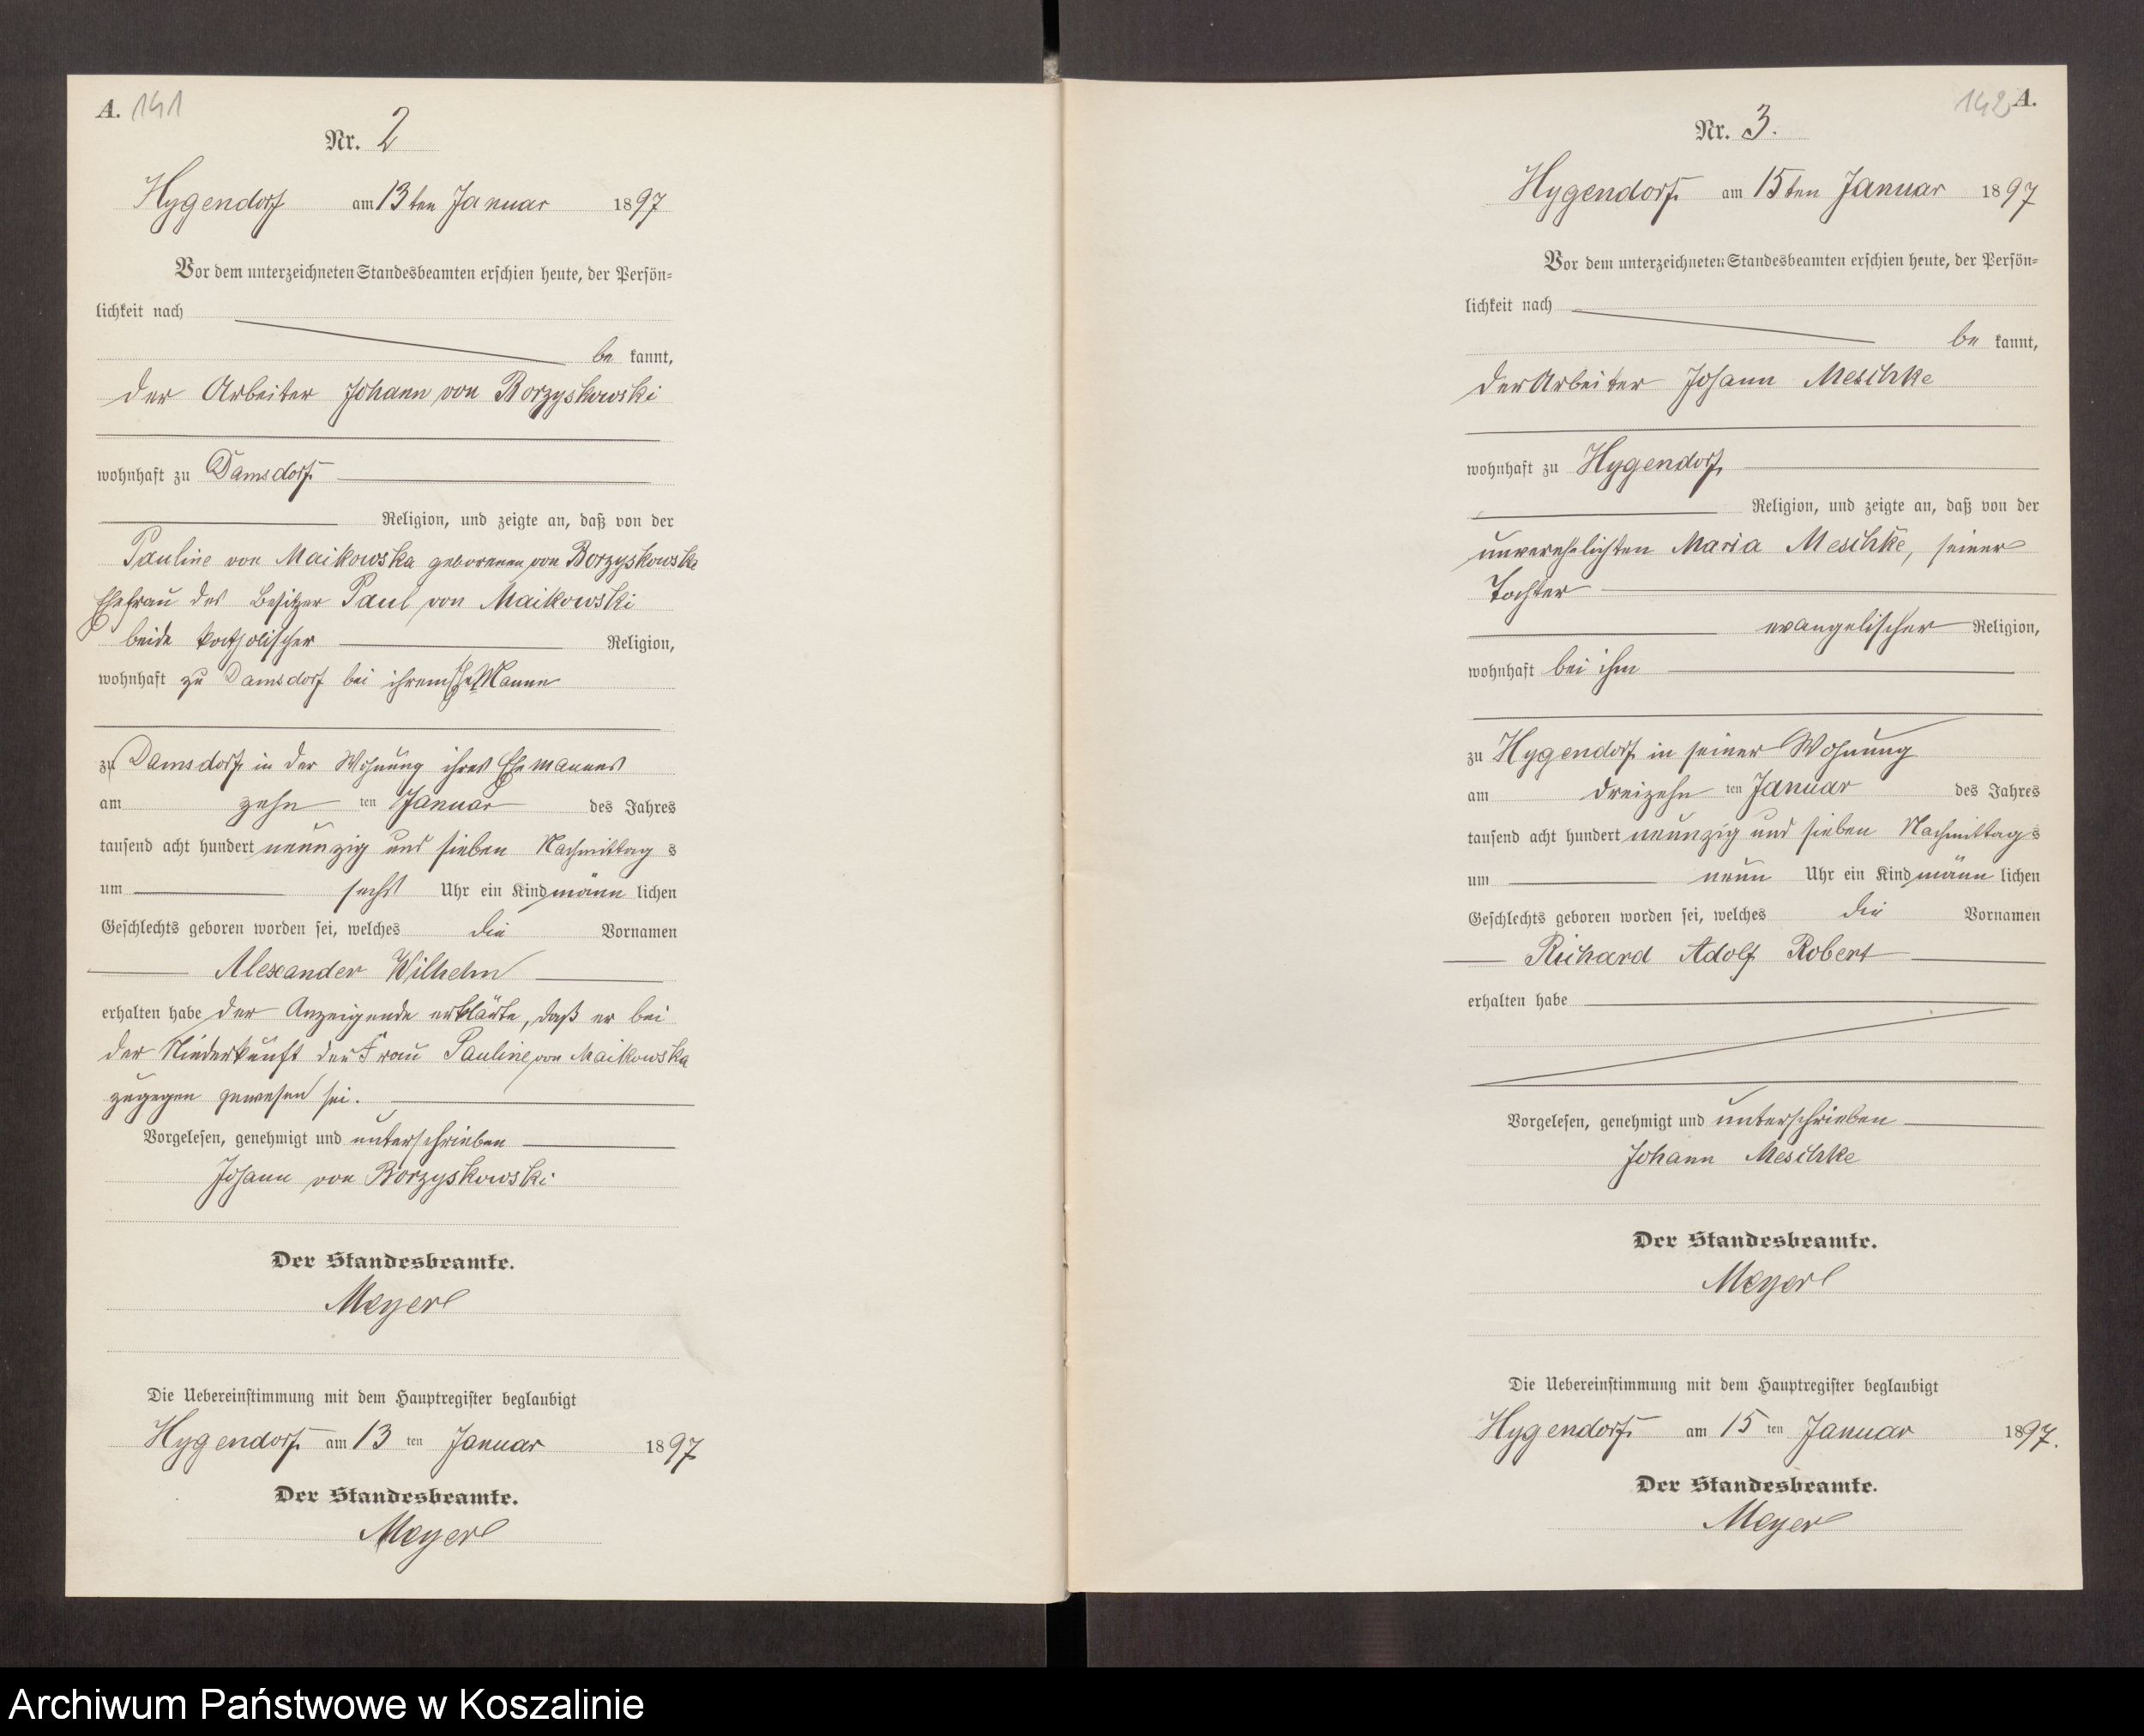 A. 141
Nr. 2
Hygendorf am 13ten Januar 1897
Vor dem unterzeichneten Standesbeamten erschien heute, der Persön-
lichkeit nach
be kannt,
der Arbeiter Johann von Borzyskowski
wohnhaft zu Damsdorf
Religion, und zeigte an, daß von der
Pauline von Maikowska geborenen von Borzyskowska
Ehefrau des Besitzer Paul von Maikowski
beide katholischer Religion,
wohnhaft zu Damsdorf bei ihrem Ehe Manne
zu Damsdorf in der Wohnung ihres Ehemannes
am zehn ten Januar des Jahres
tausend acht hundert neunzig und sieben Nachmittag s
um sechs Uhr ein Kind männ lichen
Geschlechts geboren worden sei, welches die Vornamen
Alexander Wilhelm
erhalten habe der Anzeigende erklärte, daß er bei
der Niederkunft der Frau Pauline von Maikowska
zugegen gewesen sei.
Vorgelesen, genehmigt und unterschrieben
Johann von Borzyskowski
Der Standesbeamte.
Meyer
Die Uebereinstimmung mit dem Hauptregister beglaubigt
Hygendorf am 13 ten Januar 1897
Der Standesbeamte.
Meyer
142 A.
Nr. 3.
Hygendorf am 15ten Januar 1897
Vor dem unterzeichneten Standesbeamten erschien heute, der Persön-
lichkeit nach
be kannt,
der Arbeiter Johann Meschke
wohnhaft zu Hygendorf
Religion, und zeigte an, daß von der
unverehelichten Maria Meschke, seiner
Tochter
evangelischer Religion,
wohnhaft bei ihm
zu Hygendorf in seiner Wohnung
am dreizehn ten Januar des Jahres
tausend acht hundert neunzig und sieben Nachmittag s
um neun Uhr ein Kind männ lichen
Geschlechts geboren worden sei, welches die Vornamen
Richard Adolf Robert
erhalten habe
Vorgelesen, genehmigt und unterschrieben
Johann Meschke
Der Standesbeamte.
Meyer
Die Uebereinstimmung mit dem Hauptregister beglaubigt
Hygendorf am 15 ten Januar 1897.
Der Standesbeamte.
Meyer
Archiwum Państwowe w Koszalinie